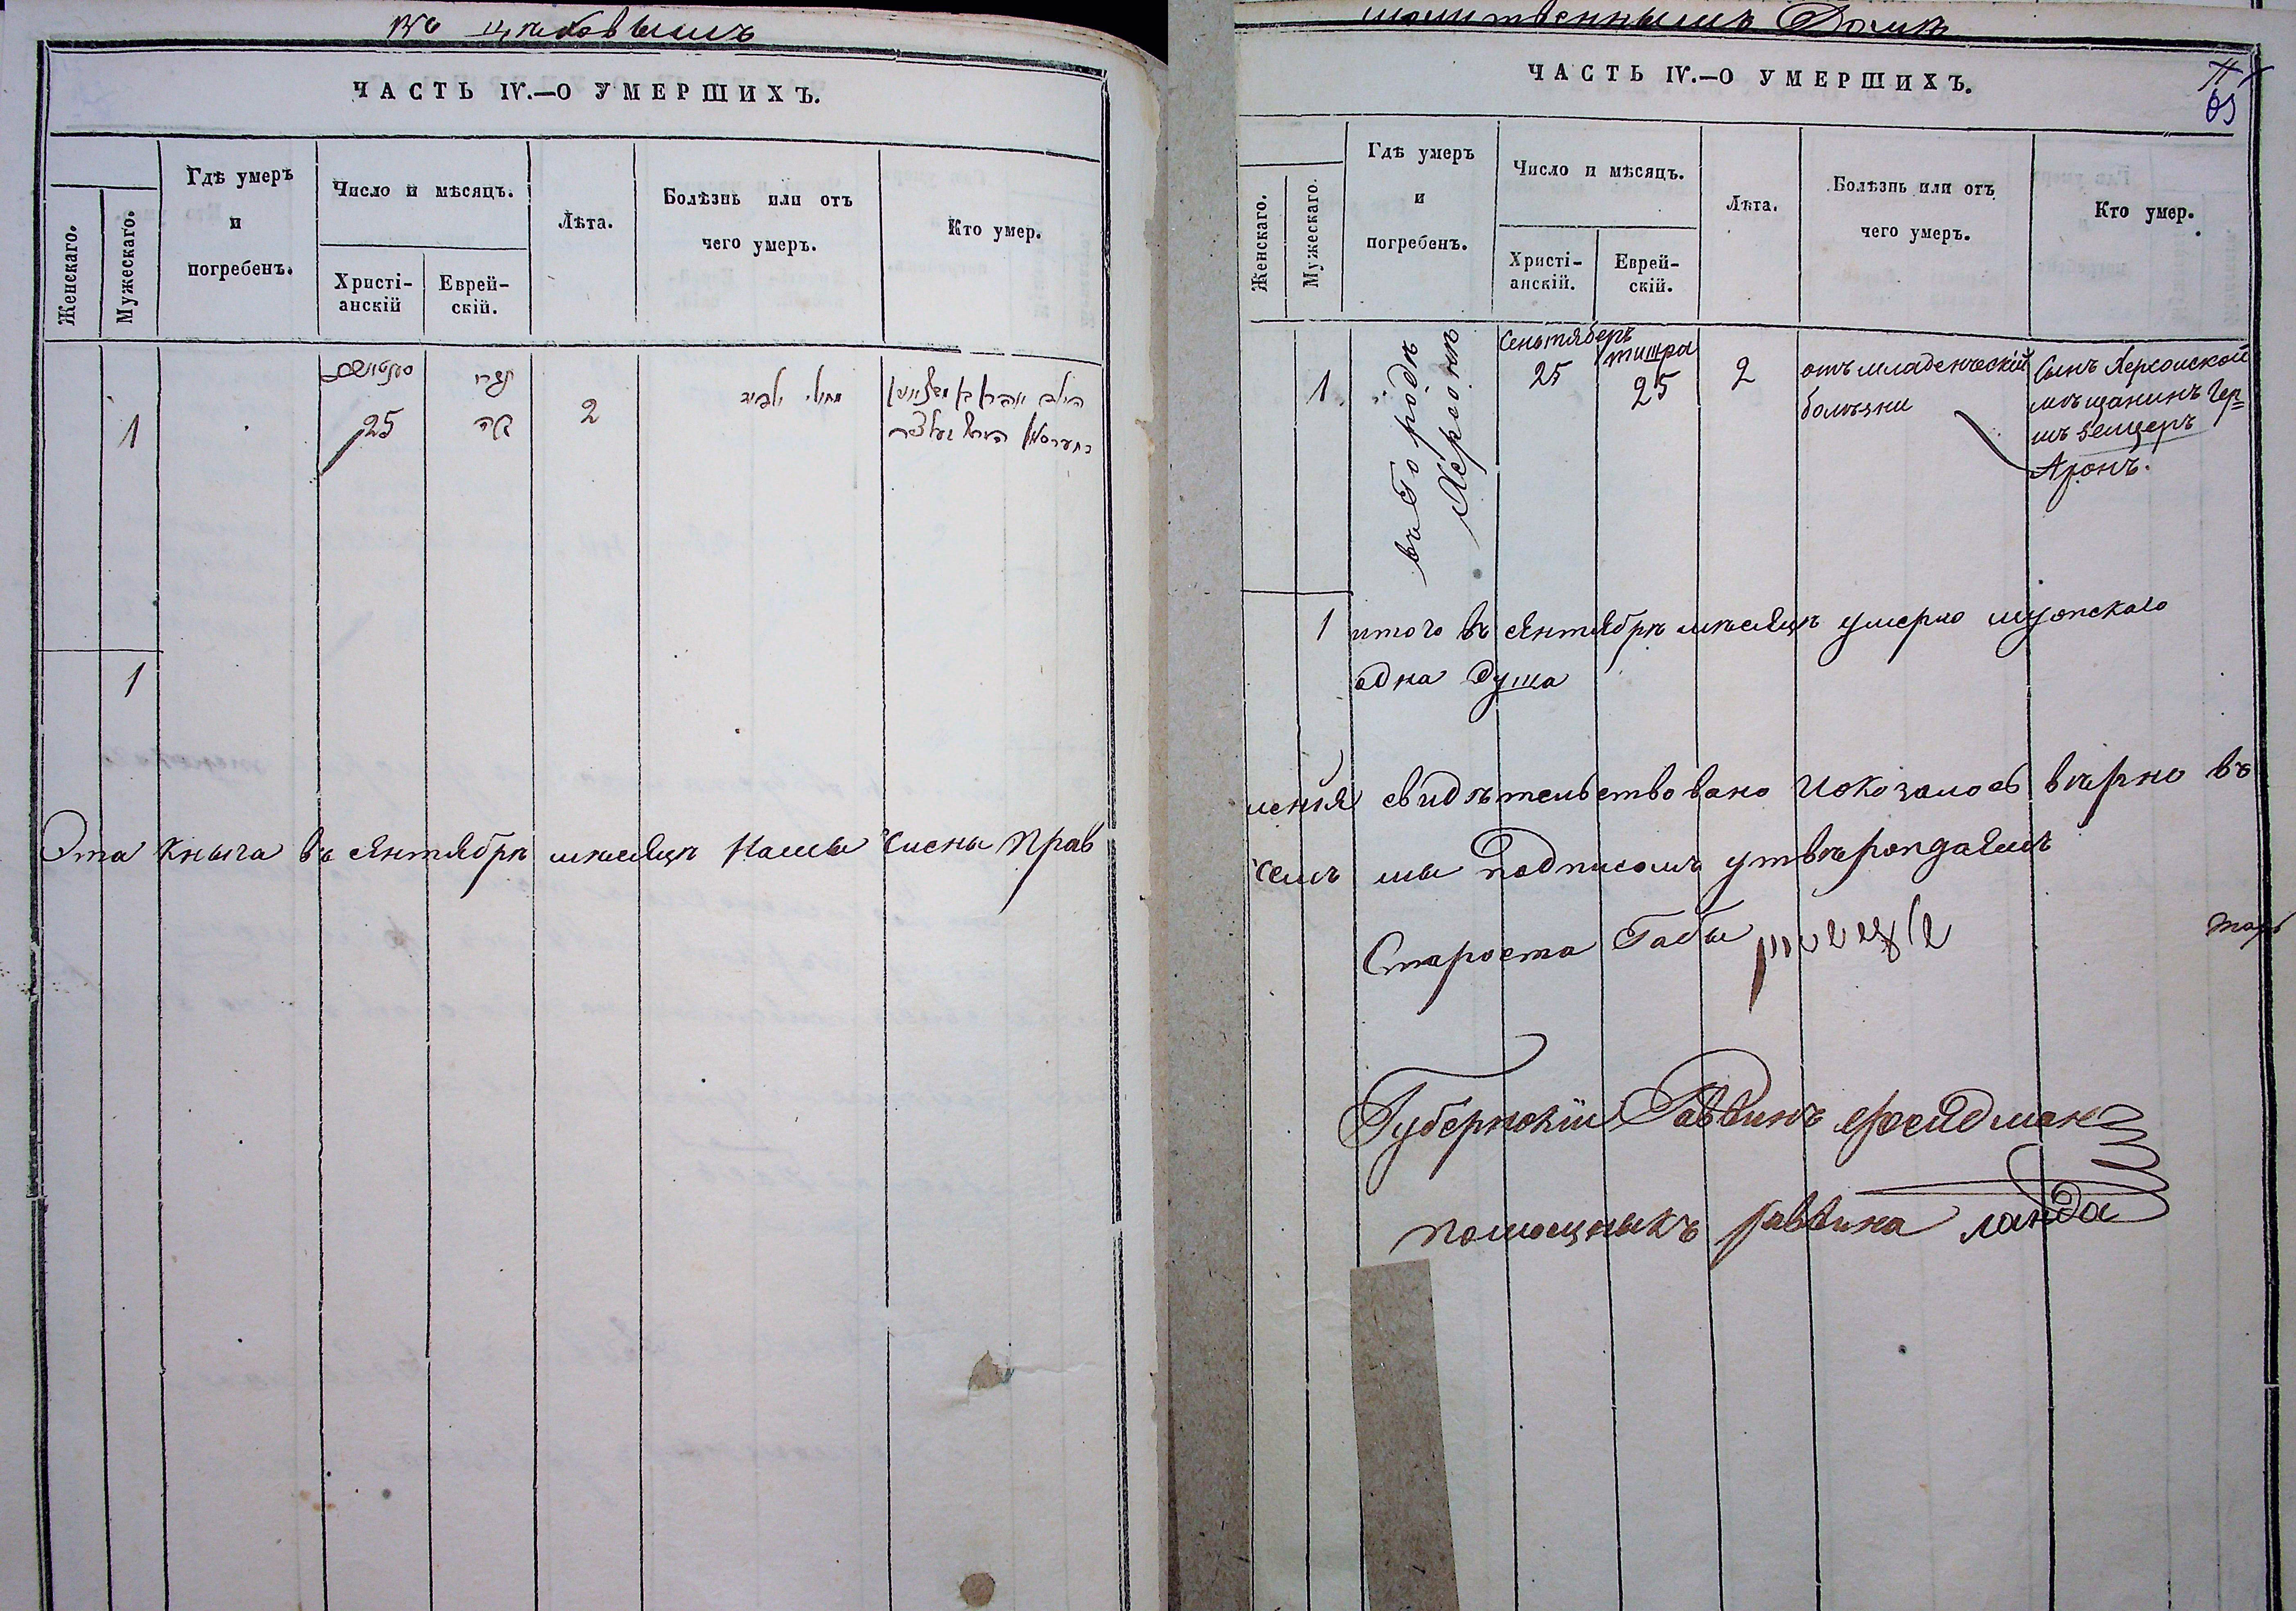 ЧАСТЬ IV.—О УМЕРШИХЪ.
Женскаго.
Мужескаго.
Гдѣ умеръ
и
погребенъ.
Число и мѣсяцъ.
Христі-
анскій
Еврей-
скій.
Лѣта.
Болѣзнь или отъ
чего умеръ.
Кто умер.
תשרי
1
25
כה
2
1
Эта кныга въ сянтябрѣ мѣсяцѣ Нами члены Прав
молитвеннымъ Домѣ
ЧАСТЬ IV.—О УМЕРШИХЪ.
65
Женскаго.
Мужескаго.
Гдѣ умеръ
и
погребенъ.
Число и мѣсяцъ.
Христі-
анскій.
Еврей-
скій.
Лѣта.
Болѣзнь или отъ
чего умеръ.
Кто умер.
1
въ Городѣ
Херсонѣ
Сентяберъ
25
тишра
25
2
отъ младенческій
болѣзни
Сынъ Херсонской
мѣщанинъ Гер=
шъ
Аронъ.
1 итого въ сянтябрѣ мѣсяцѣ умерло мужскаго
одна душа
ления свидѣтельствовано Иоказалось вѣрно въ
чемъ мы подписомъ утвѣрождаемъ
Староста Габы
Губернскій Раввинъ Фейдман
помощныкъ раввина ланда